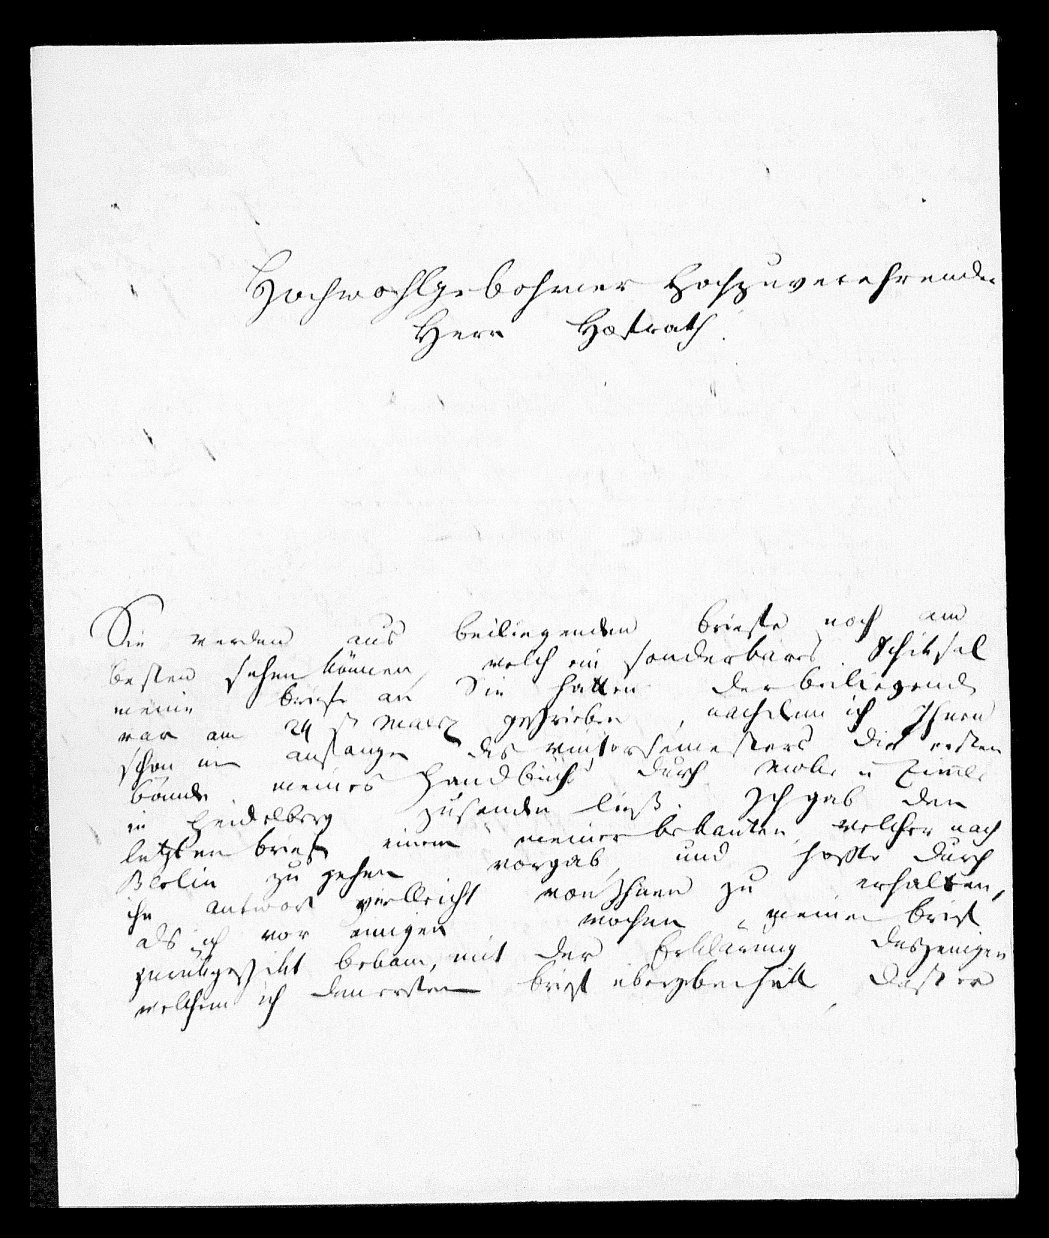 Hochwohlgebohrner Hochzuverehrender
Herr Hofrath!
Sie werden aus beiliegenden briefe noch am
besten sehen können, welch ein sonderbares Schiksal
meine briefe an Sie hatten. Der beiliegende
war am 24 st Maerz geschrieben, nachdem ich Ihnen
schon im anfange des wintersemesters die ersten
bände meines Handbuchs durch Mohr u Zimmer
in Heidelberg zusenden ließ. Ich gab den
letzten brief einem meiner bekanten, welcher nach
Berlin zu gehen vorgab, und hoffte durch
ihn antwort vielleicht von Ihnen zu erhalten,
als ich vor einigen wochen meinen brief
zurükgeschikt bekam, mit der Erklärung desjenigen
welchem ich den ersten brief übergeben hatte, daß er